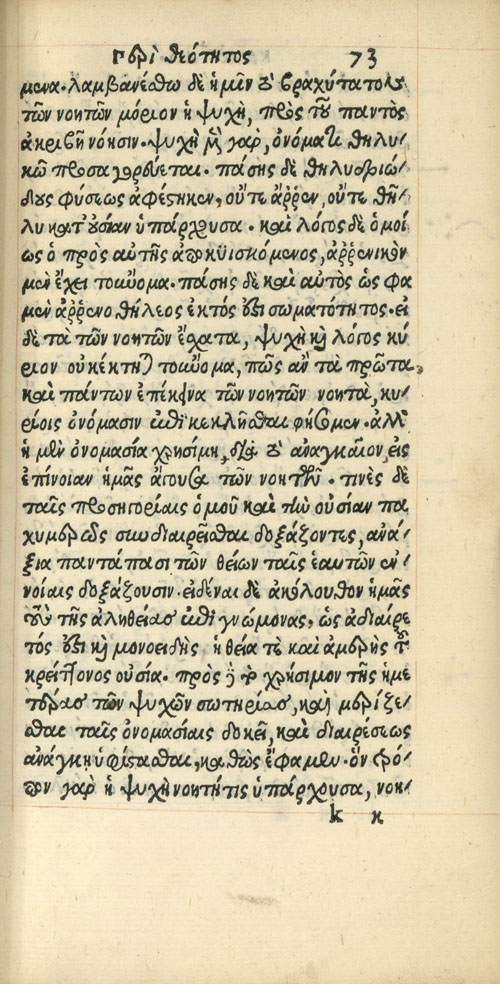 Περὶ θεότητος 73
μενα. λαμβανέσθω δὲ ἡμῖν τὸ βραχύτατον
τῶν νοητῶν μόριον ἡ ψυχὴ, πρὸς τὴν τοῦ παντὸς
ἀκριβῆ νόησιν. ψυχὴ μὲν γὰρ, ὀνόματι θηλυ/
κῷ προσαγορεύεται. πάσης δὲ θηλυδριώ/
δους φύσεως ἀφέστηκεν, οὔτε ἄῤῥεν, οὔτε θῆ/
λυ κατ' οὐσίαν ὑπάρχουσα. καὶ λόγος δὲ ὁμοί
ως ὁ πρὸς αὐτῆς ἀποκυϊσκόμενος, ἀῤῥενικὸν
μὲν ἔχει τοὔνομα. πάσης δὲ καὶ αὐτὸς ὡς ἔφα
μεν ἀῤῥενοθήλεος ἐκτός ἐστι σωματότητος. εἰ
δὲ τὰ τῶν νοητῶν ἔσχατα, ψυχὴ καὶ λόγος κύ
ριον οὐ κέκτηται τοὔνομα, πῶς ἂν τὰ πρῶτα
καὶ πάντων ἐπέκεινα τῶν νοητῶν νοητὰ, κυ/
ρίοις ὀνόμασιν ἐπικεκλῆσθαι φήσομεν. ἀλλ'
ἡ μὲν ὀνομασία χρησίμη, διὰ τὸ ἀναγκαῖον, εἰς
ἐπίνοιαν ἡμᾶς ἄγουσα τῶν νοητῶν. τινὲς δὲ
ταῖς προσηγορίαις ὁμοῦ καὶ τὴν οὐσίαν πα
χυμερῶς συνδιαιρεῖσθαι δοξάζοντες, ἀνά/
ξια παντάπασι τῶν θείων ταῖς ἑαυτῶν ἐν/
νοίαις δοξάζουσιν. εἰδέναι δὲ ἀκόλουθον ἡμᾶς
τοὺς τῆς ἀληθείας ἐπιγνώμονας, ὡς ἀδιαίρε
τός ἐστι καὶ μονοειδὴς ἡ θεία τε καὶ ἀμερὴς τοῦ
κρείττονος οὐσία. πρὸς δὲ τὸ χρήσιμον τῆς ἡμε
τέρας τῶν ψυχῶν σωτηρίας, καὶ μερίζε/
σθαι ταῖς ὀνομασίαις δοκεῖ, καὶ διαιρέσεως
ἀνάγκῃ ὑφίστασθαι, καθὼς ἔφαμεν. ὃν τρό/
πον γὰρ ἡ ψυχὴ νοητή τις ὑπάρχουσα, νοη/
k κ